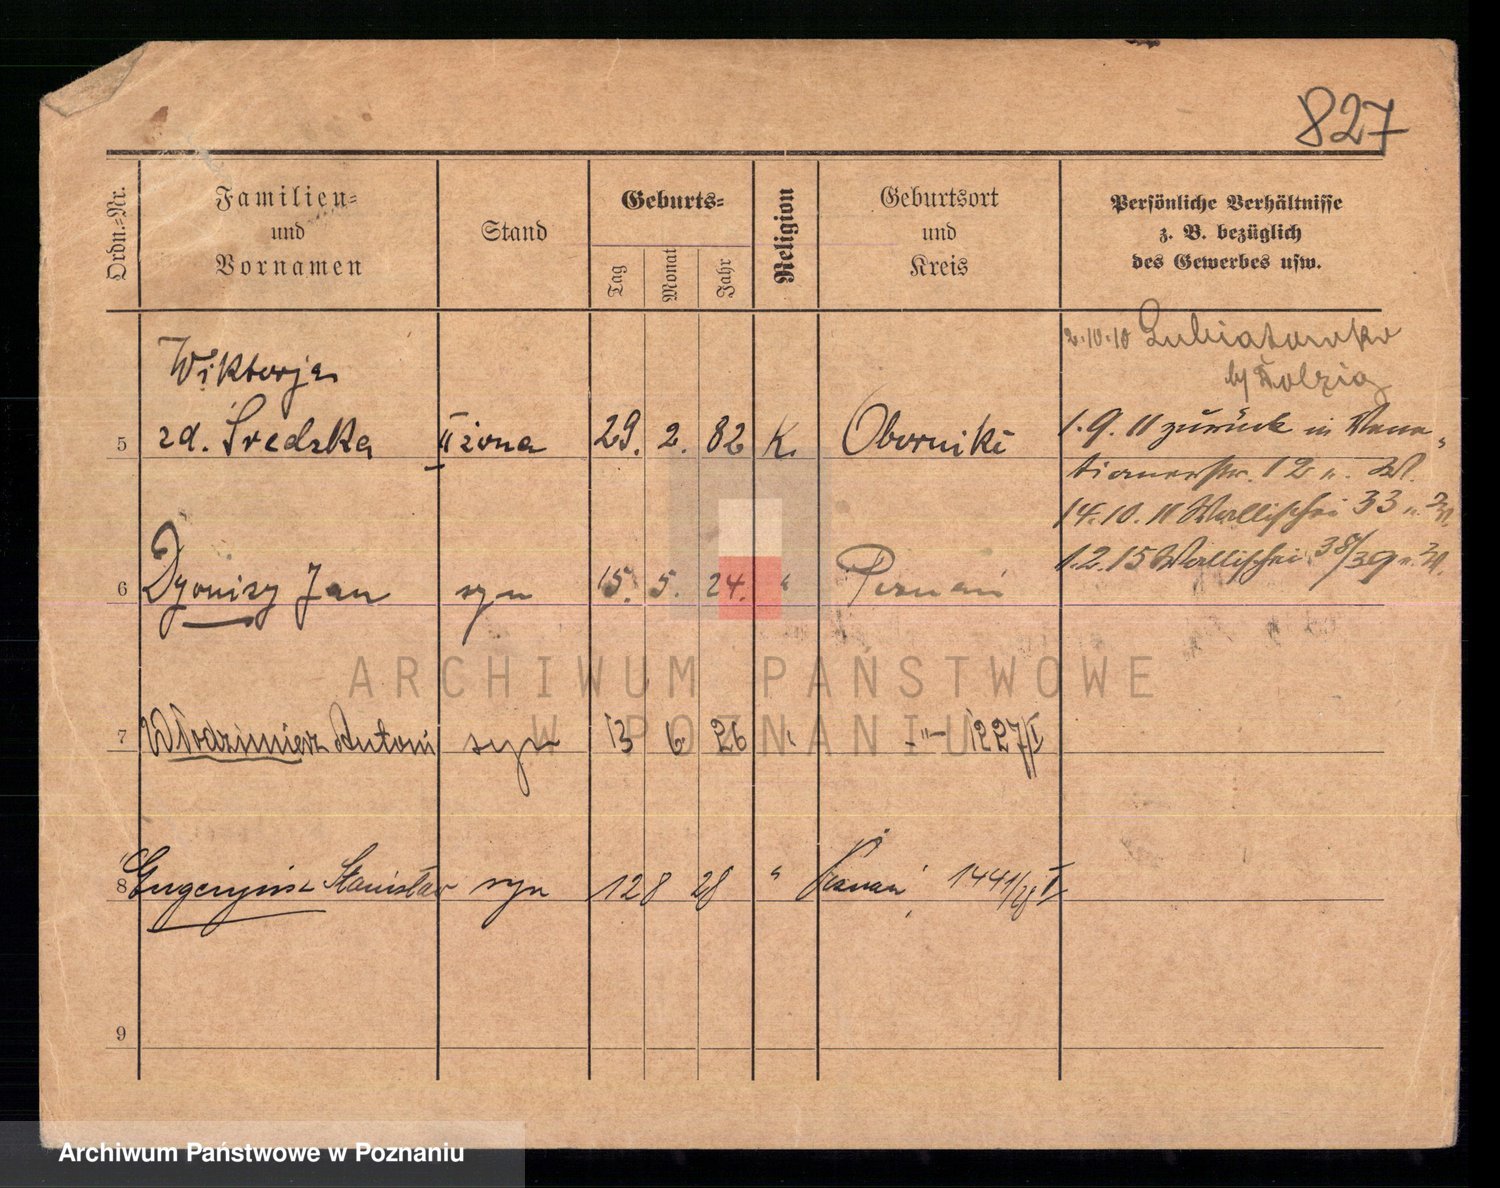 827
Ordn.-Nr.
Familien-
und
Vornamen
Stand
Geburts-
Tag
Monat
Jahr
Religion
Geburtsort
und
Kreis
Persönliche Verhältnisse
z. B. bezüglich
des Gewerbes usw.
2.10.10
Wiktorja
5 zd. Średzka II żona 29. 2. 82 K. Oborniki
1.9.11 zurück in Vene-
tianerstr. 12
14.10.11 Wallischei 33
1.2.15 Wallischei 38/39
6 Dyonizy Jan syn 15. 5. 24. " Poznań
7 Włodzimierz Antoni syn 13 6 26 " -"- 1227/I
8 Stanisław syn 12 8 28 " Poznań 1441/28 I
9
ARCHIWUM PAŃSTWOWE
W POZNANIU
Archiwum Państwowe w Poznaniu